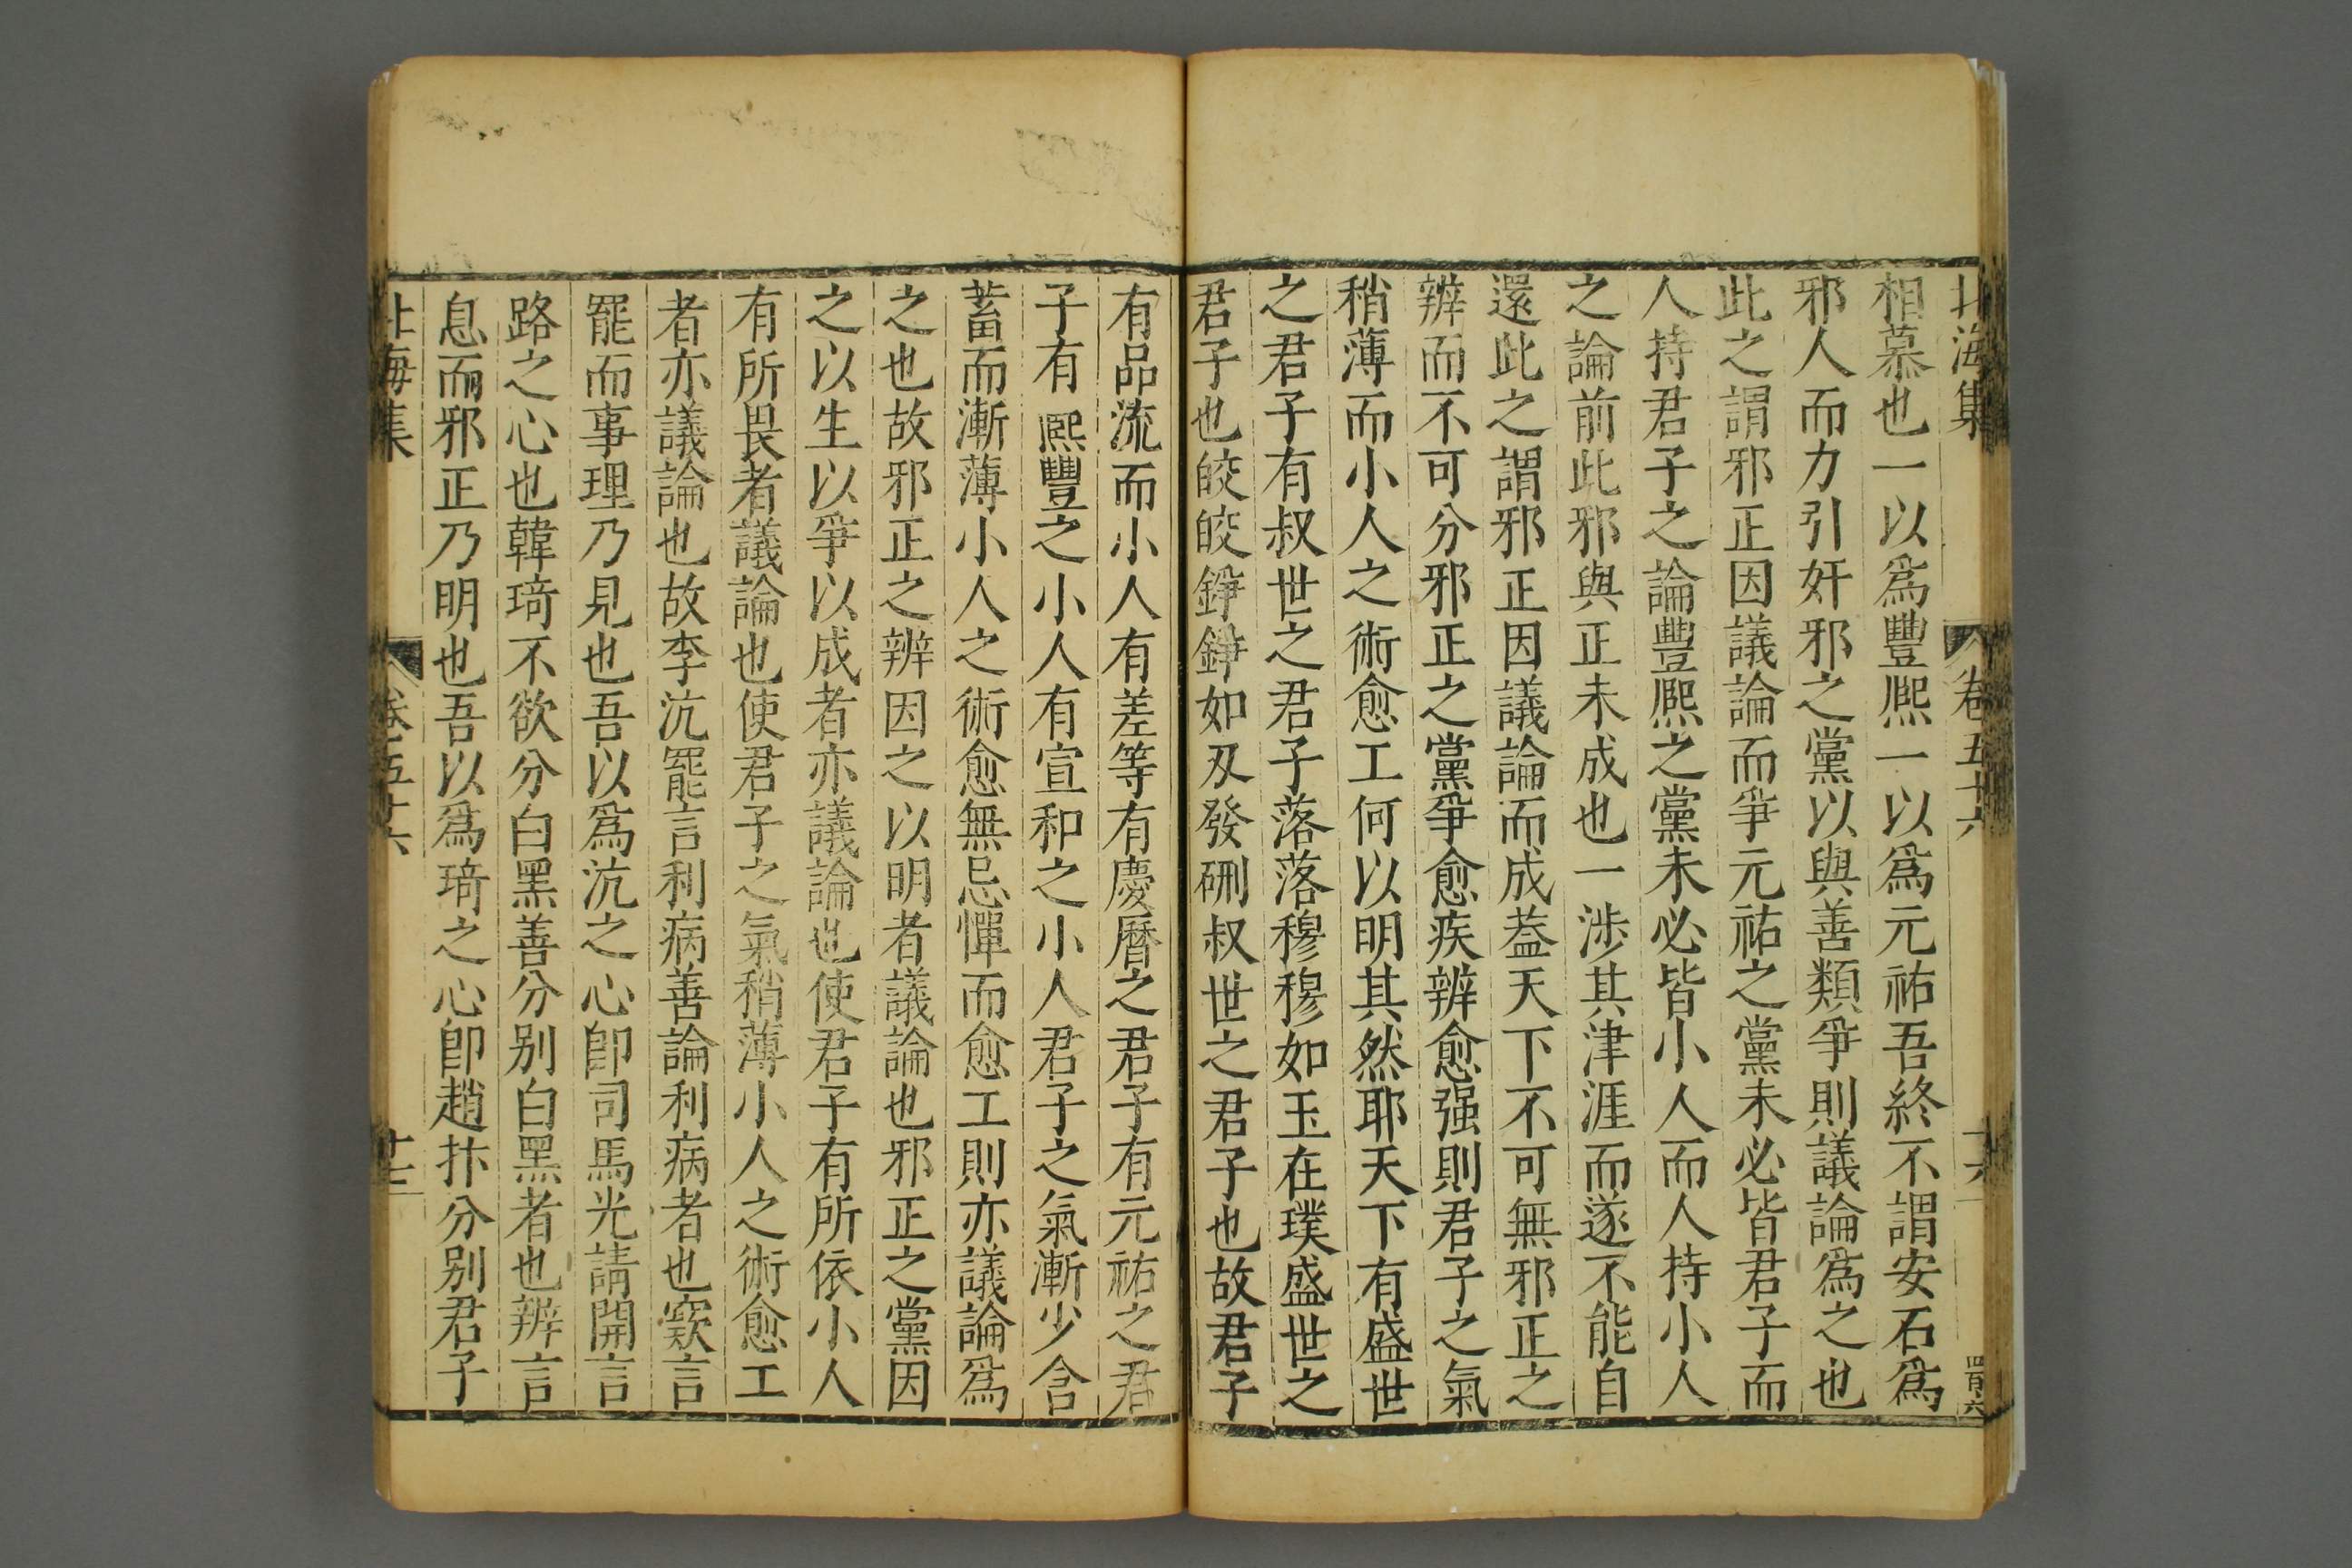 北海集 卷五十六 十六 四百六
相慕也一以爲豐熈一以爲元祐吾終不謂安石爲
邪人而力引奸邪之黨以與善類爭則議論爲之也
此之謂邪正因議論而爭元祐之黨未必皆君子而
人持君子之論豐熈之黨未必皆小人而人持小人
之論前此邪與正未成也一涉其津涯而遂不能自
還此之謂邪正因議論而成葢天下不可無邪正之
辨而不可分邪正之黨爭愈疾辨愈强則君子之氣
稍薄而小人之術愈工何以明其然耶天下有盛世
之君子有叔世之君子落落穆穆如玉在璞盛世之
君子也皎皎錚錚如刄發硎叔世之君子也故君子
有品流而小人有差等有慶曆之君子有元祐之君
子有熈豐之小人有宣和之小人君子之氣漸少含
蓄而漸薄小人之術愈無忌憚而愈工則亦議論爲
之也故邪正之辨因之以明者議論也邪正之黨因
之以生以爭以成者亦議論也使君子有所依小人
有所畏者議論也使君子之氣稍薄小人之術愈工
者亦議論也故李沆罷言利病善論利病者也窽言
罷而事理乃見也吾以爲沆之心卽司馬光請開言
路之心也韓琦不欲分白黑善分别白黑者也辨言
息而邪正乃明也吾以爲琦之心卽趙抃分别君子
北海集 卷五十六